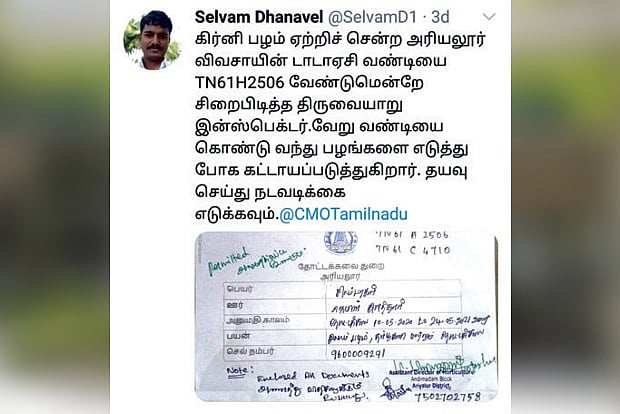 Selvam Dhanavel @SelvamD1 · 3d
கிர்னி பழம் ஏற்றிச் சென்ற அரியலூர்
விவசாயின் டாடாஏசி வண்டியை
TN61H2506 வேண்டுமென்றே
சிறைபிடித்த திருவையாறு
இன்ஸ்பெக்டர்.வேறு வண்டியை
கொண்டு வந்து பழங்களை எடுத்து
போக கட்டாயப்படுத்துகிறார். தயவு
செய்து நடவடிக்கை
எடுக்கவும்.@CMOTamilnadu
TN 61 H 2506
TN 61 C 4710
Permitted
தோட்டக்கலை துறை
அரியலூர்
பெயர்
ஊர்
அனுமதி காலம் 10-05-2020 to
பயன்
செல் நம்பர் 9600009291
Note: Enclosed All Documents
Assistant Director of Horticulture
Andimadam Block
Ariyalur District.
7502702758